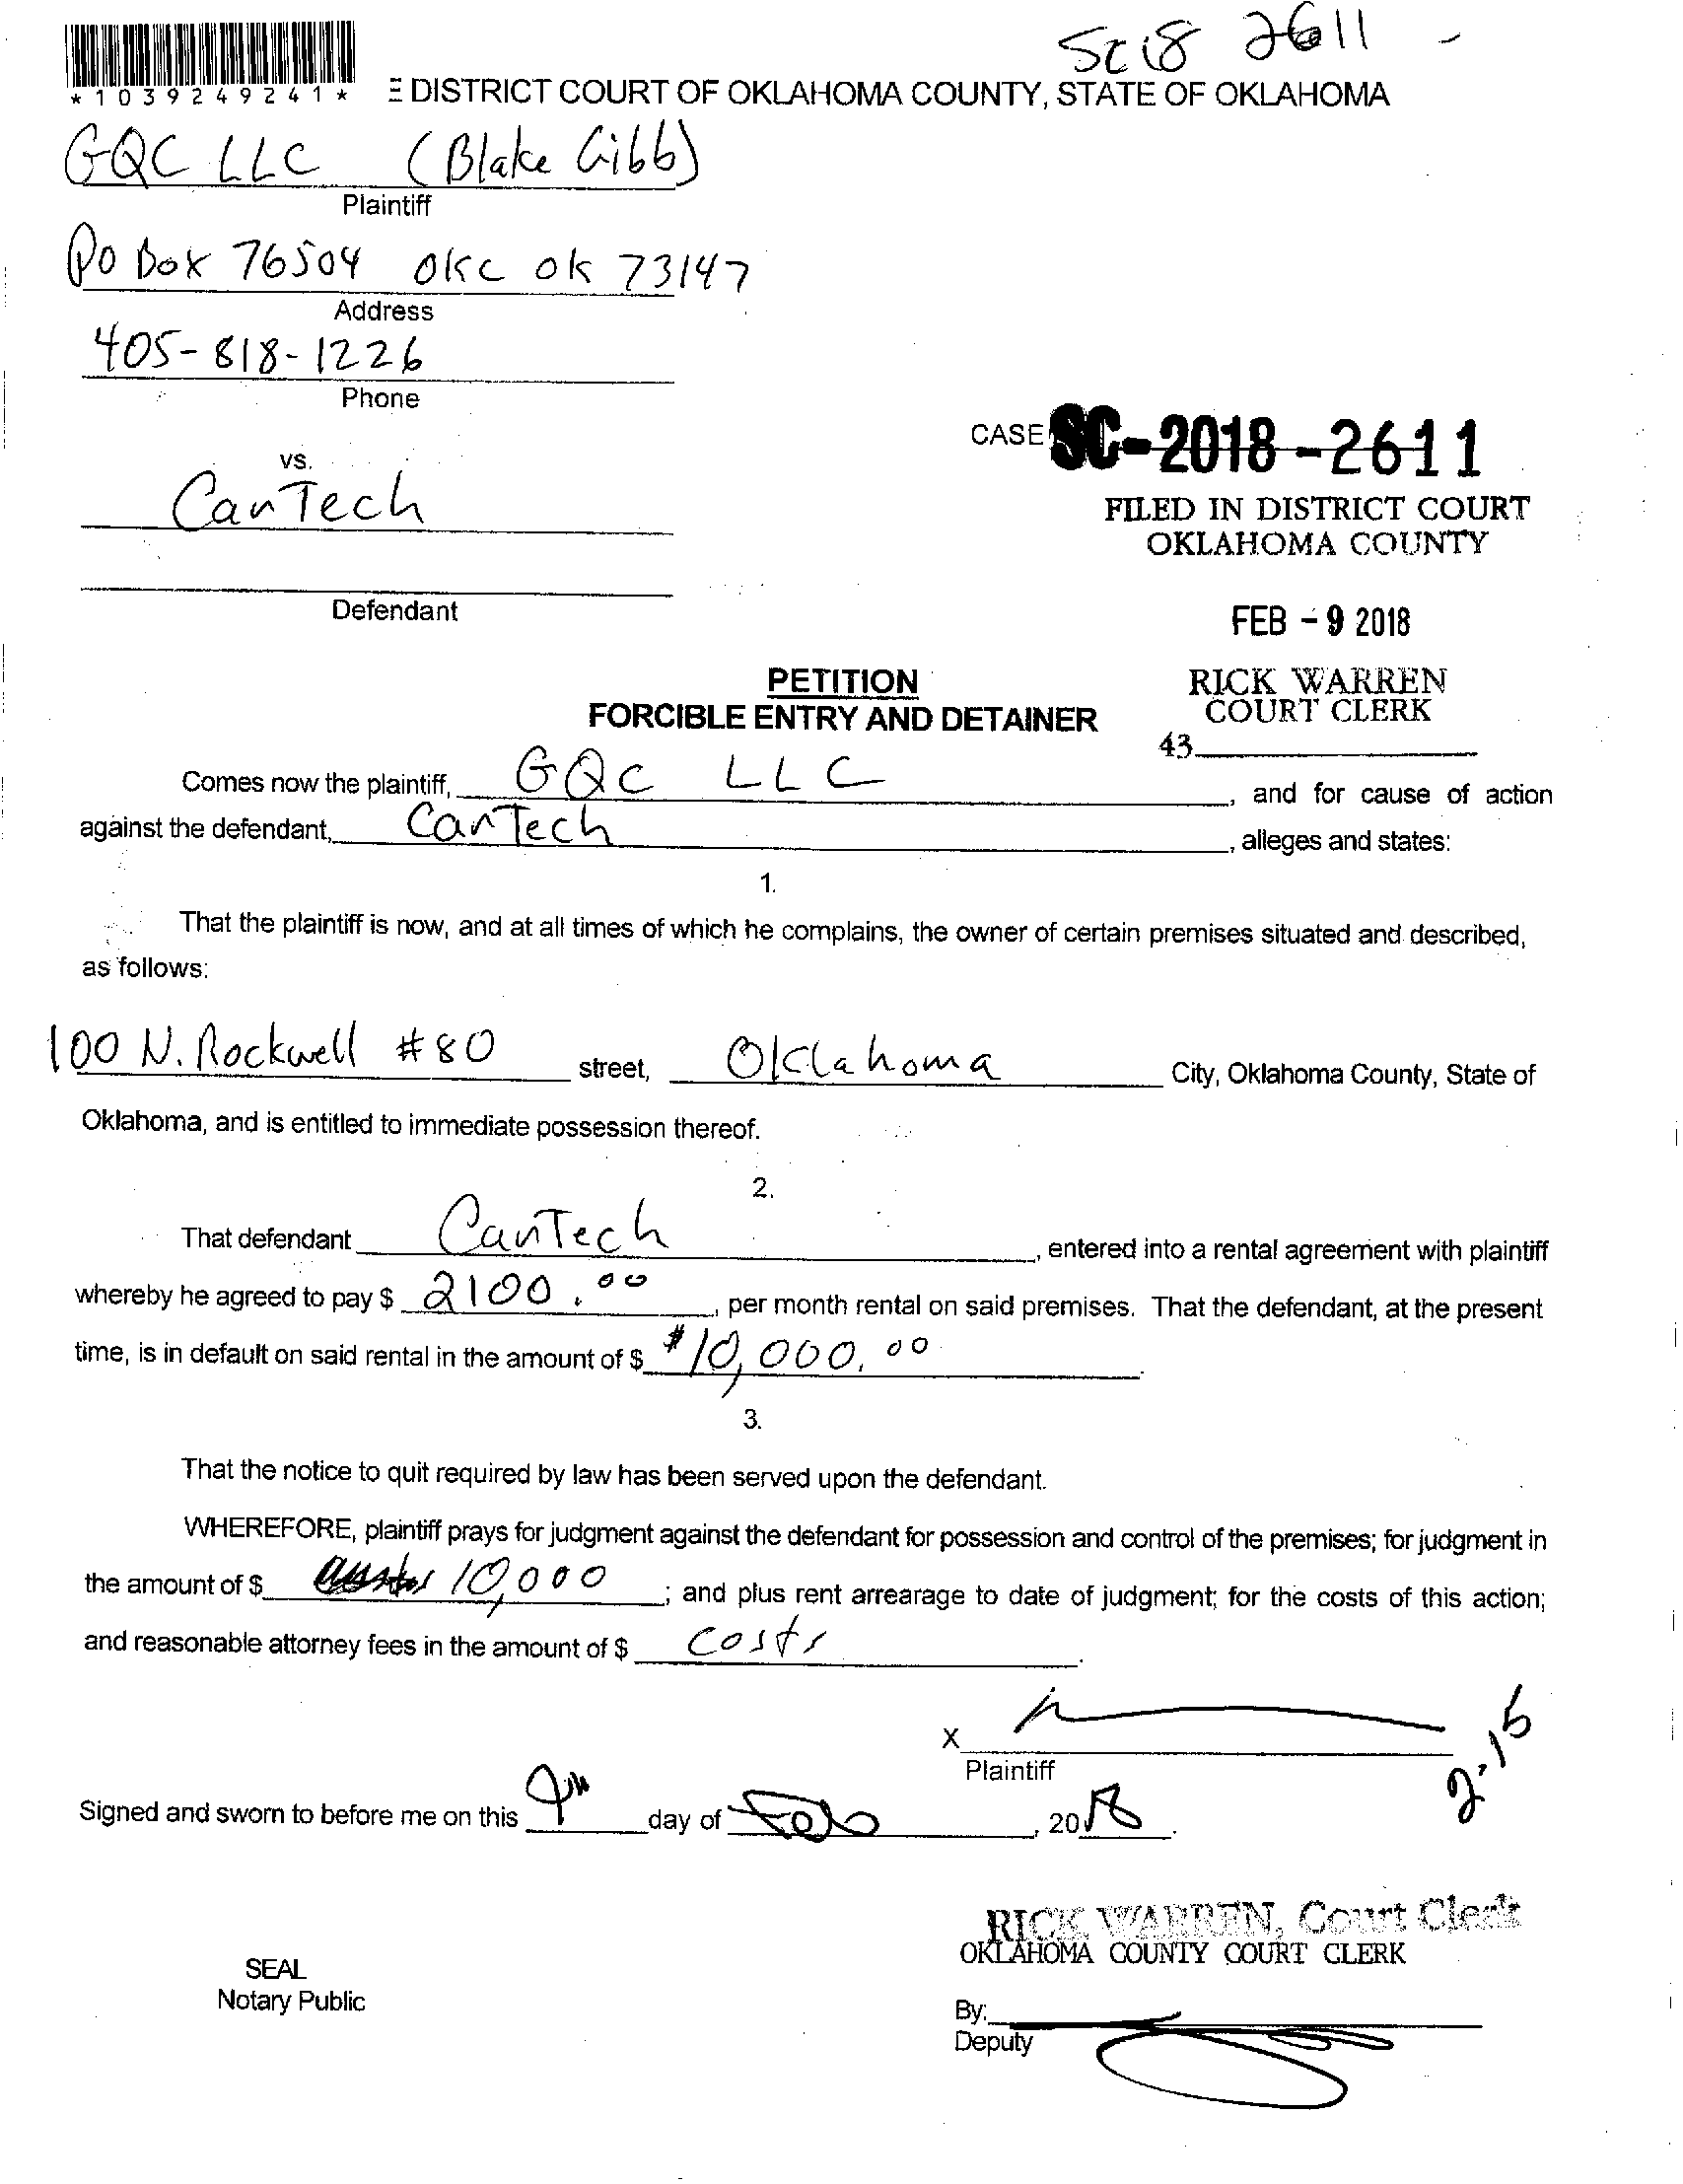 SC18 2611 -
*1039249241*
E DISTRICT COURT OF OKLAHOMA COUNTY, STATE OF OKLAHOMA
GQC LLC (Blake Gibb)
Plaintiff
PO Box 76504 OKC OK 73147
Address
405-818-1226
Phone
CASE SC-2018-2611
vs.
CanTech
FILED IN DISTRICT COURT
OKLAHOMA COUNTY
Defendant
FEB - 9 2018
PETITION
FORCIBLE ENTRY AND DETAINER
RICK WARREN
COURT CLERK
43
Comes now the plaintiff, GQC LLC, and for cause of action
against the defendant, CanTech, alleges and states:
1.
That the plaintiff is now, and at all times of which he complains, the owner of certain premises situated and described,
as follows:
100 N. Rockwell #80 street, Oklahoma City, Oklahoma County, State of
Oklahoma, and is entitled to immediate possession thereof.
2.
That defendant CanTech, entered into a rental agreement with plaintiff
whereby he agreed to pay $ 2100.00, per month rental on said premises. That the defendant, at the present
time, is in default on said rental in the amount of $ $10,000.00
3.
That the notice to quit required by law has been served upon the defendant.
WHEREFORE, plaintiff prays for judgment against the defendant for possession and control of the premises; for judgment in
the amount of $ 10,000; and plus rent arrearage to date of judgment; for the costs of this action;
and reasonable attorney fees in the amount of $ Costs.
X
Plaintiff
2.15
Signed and sworn to before me on this 9th day of Feb, 2018.
RICK WARREN, Court Clerk
OKLAHOMA COUNTY COURT CLERK
SEAL
Notary Public
By:
Deputy